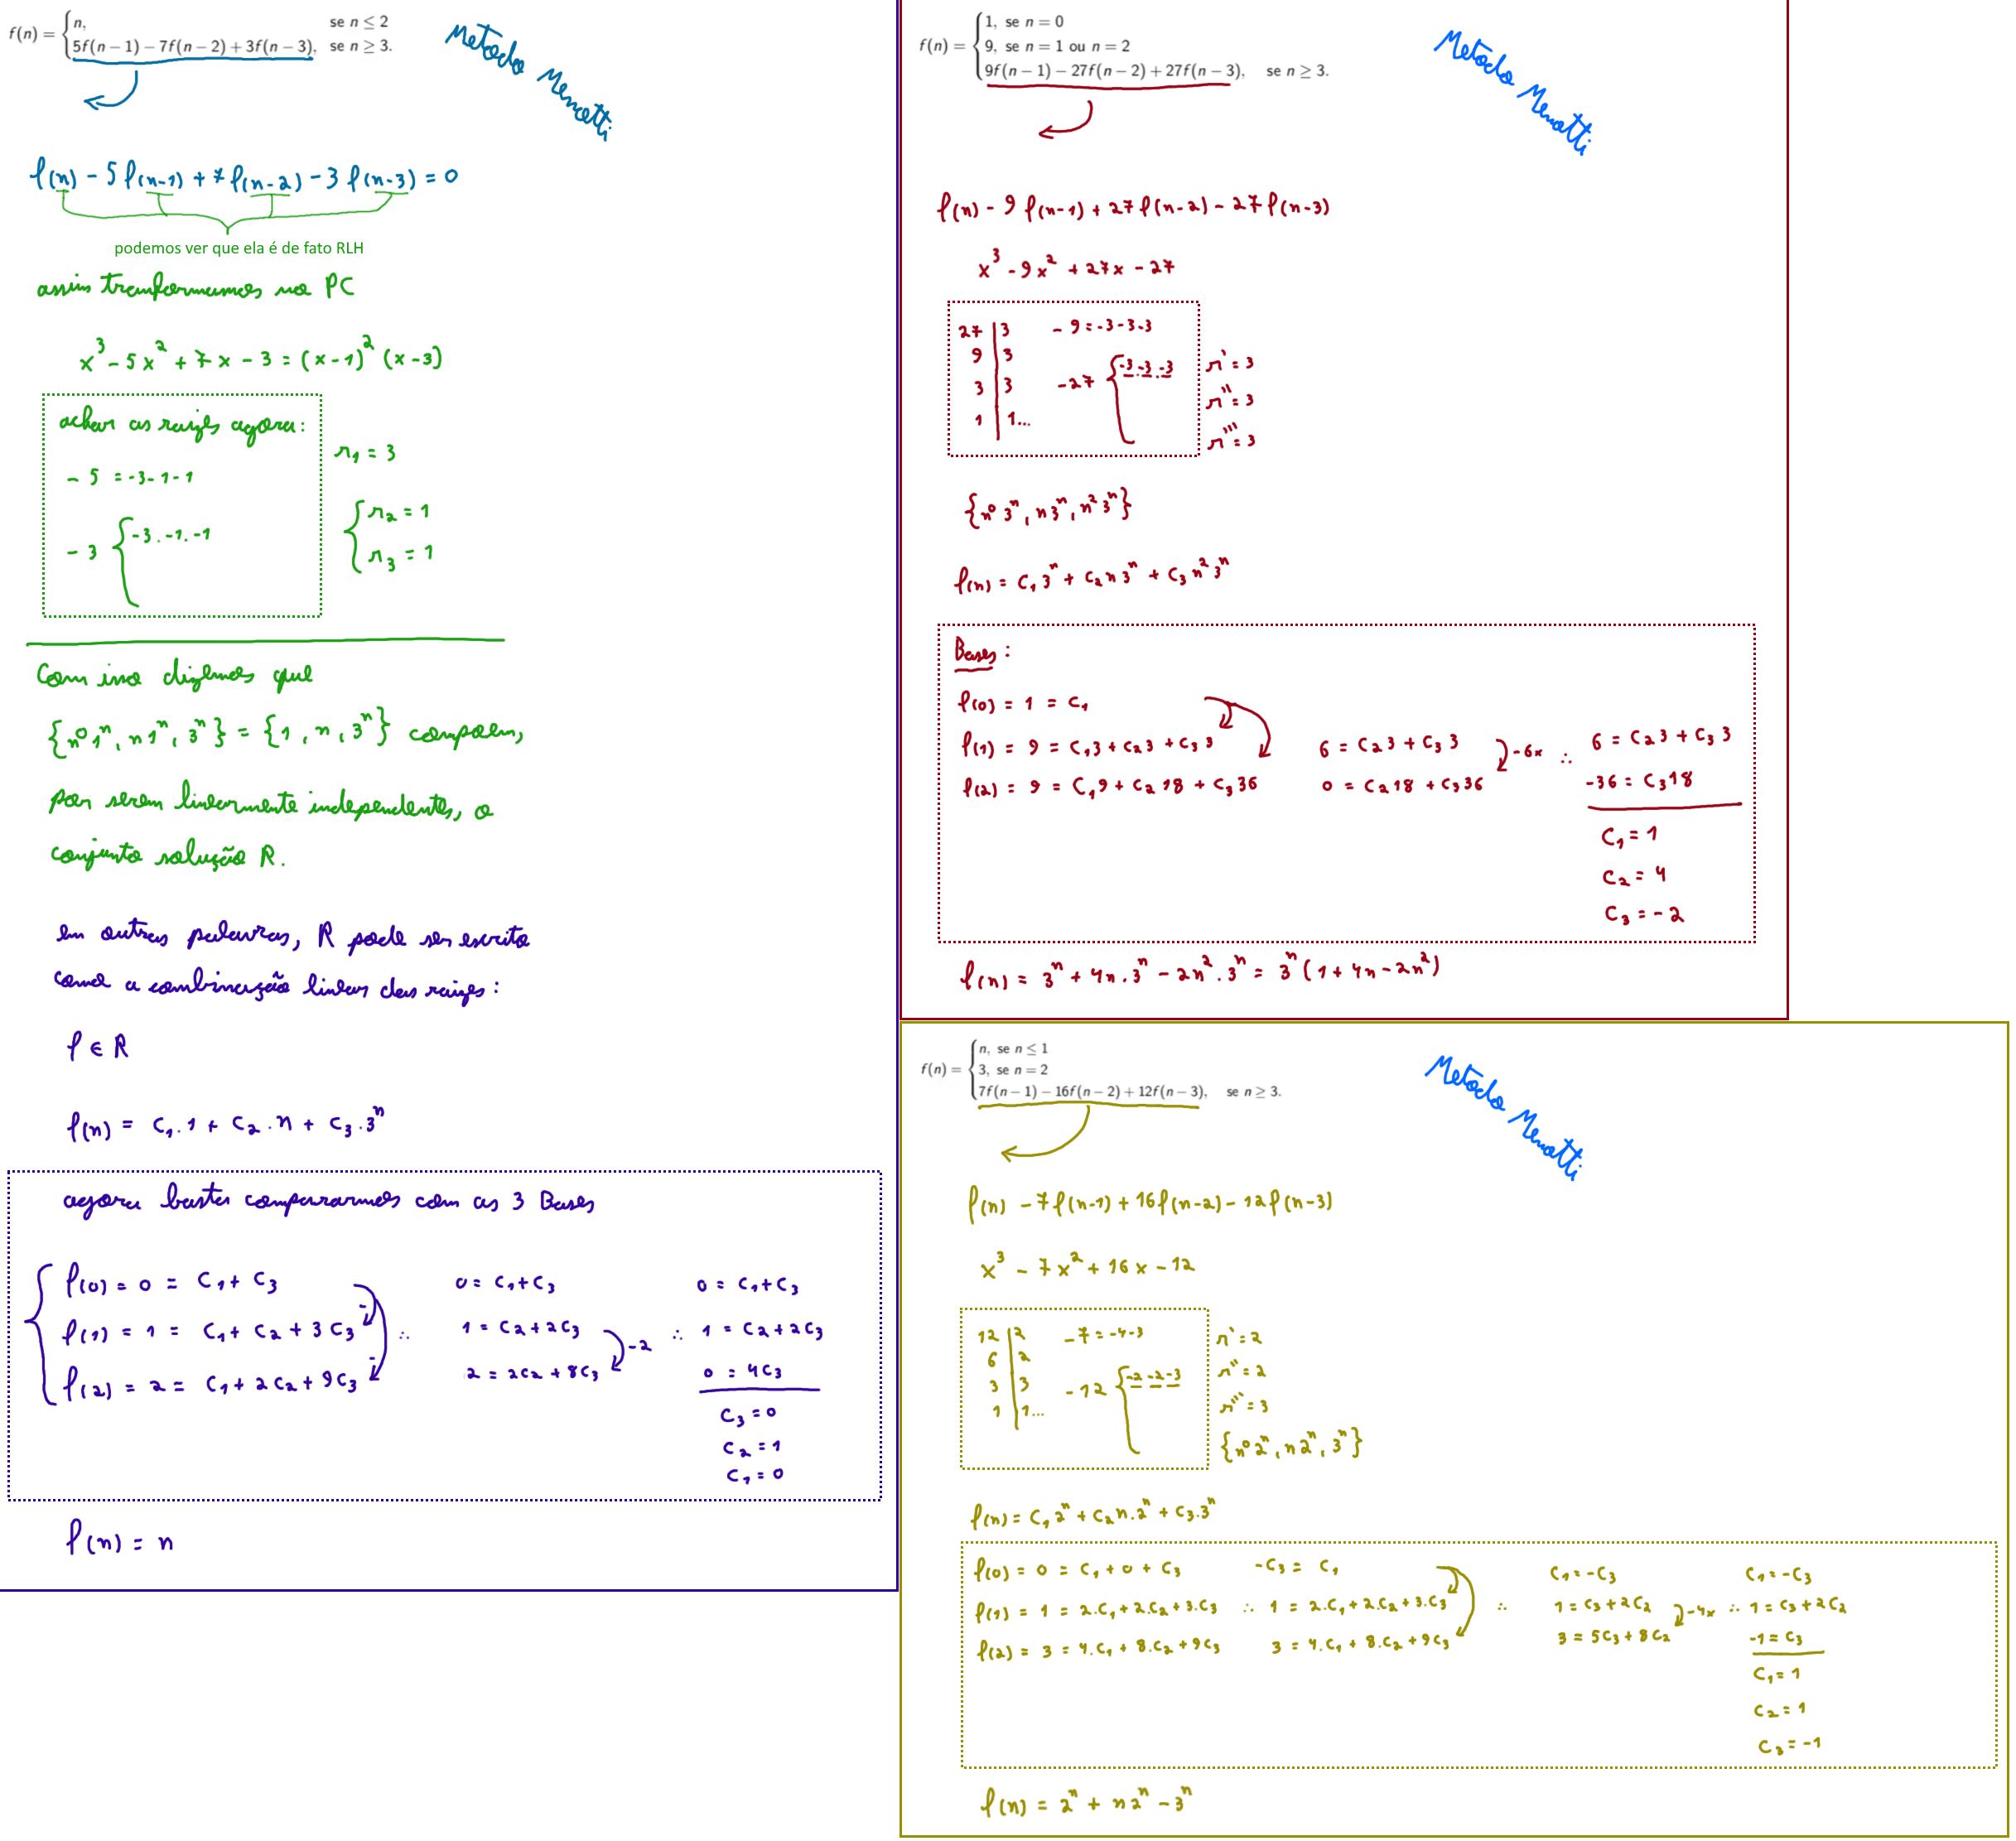 f(n) = { n, se n ≤ 2
5f(n − 1) − 7f(n − 2) + 3f(n − 3), se n ≥ 3.
Metodo Menotti
f(n) - 5 f(n-1) + 7 f(n-2) - 3 f(n-3) = 0
podemos ver que ela é de fato RLH
assim transformamos na PC
x³ - 5x² + 7x - 3 = (x-1)² (x-3)
achar as raizes agora:
- 5 = -3-1-1
- 3 { -3 . -1 . -1
r₁ = 3
{ r₂ = 1
r₃ = 1
Com isso dizemos que
{n⁰1ⁿ, n1ⁿ, 3ⁿ} = {1, n, 3ⁿ} compoem,
por serem linearmente independentes, o
conjunto solução R.
em outras palavras, R pode ser escrito
como a combinação linear das raizes:
f ∈ R
f(n) = C₁.1 + C₂.n + C₃.3ⁿ
agora basta compararmos com as 3 Bases
{ f(0) = 0 = C₁ + C₃
f(1) = 1 = C₁ + C₂ + 3C₃
f(2) = 2 = C₁ + 2C₂ + 9C₃
-
-
∴
0 = C₁+C₃
1 = C₂+2C₃
2 = 2C₂ + 8C₃
-2
∴
0 = C₁+C₃
1 = C₂+2C₃
0 = 4C₃
C₃ = 0
C₂ = 1
C₁ = 0
f(n) = n
f(n) = { 1, se n = 0
9, se n = 1 ou n = 2
9f(n − 1) − 27f(n − 2) + 27f(n − 3), se n ≥ 3.
Metodo Menotti
f(n) - 9 f(n-1) + 27 f(n-2) - 27 f(n-3)
x³ - 9x² + 27x - 27
27 | 3
9 | 3
3 | 3
1 | 1...
- 9 = -3-3-3
-27 { -3 . -3 . -3
r' = 3
r'' = 3
r''' = 3
{n⁰3ⁿ, n3ⁿ, n²3ⁿ}
f(n) = C₁3ⁿ + C₂n3ⁿ + C₃n²3ⁿ
Bases:
f(0) = 1 = C₁
f(1) = 9 = C₁3 + C₂3 + C₃3
f(2) = 9 = C₁9 + C₂18 + C₃36
6 = C₂3 + C₃3
0 = C₂18 + C₃36
-6x
∴
6 = C₂3 + C₃3
-36 = C₃18
C₁ = 1
C₂ = 4
C₃ = -2
f(n) = 3ⁿ + 4n.3ⁿ - 2n².3ⁿ = 3ⁿ(1 + 4n - 2n²)
f(n) = { n, se n ≤ 1
3, se n = 2
7f(n − 1) − 16f(n − 2) + 12f(n − 3), se n ≥ 3.
Metodo Menotti
f(n) - 7f(n-1) + 16f(n-2) - 12f(n-3)
x³ - 7x² + 16x - 12
12 | 2
6 | 2
3 | 3
1 | 1...
-7 = -4-3
-12 { -2 -2 -3
r' = 2
r'' = 2
r''' = 3
{n⁰2ⁿ, n2ⁿ, 3ⁿ}
f(n) = C₁2ⁿ + C₂n.2ⁿ + C₃.3ⁿ
f(0) = 0 = C₁ + 0 + C₃
f(1) = 1 = 2.C₁ + 2.C₂ + 3.C₃
f(2) = 3 = 4.C₁ + 8.C₂ + 9C₃
∴
-C₃ = C₁
1 = 2.C₁ + 2.C₂ + 3.C₃
3 = 4.C₁ + 8.C₂ + 9C₃
∴
C₁ = -C₃
1 = C₃ + 2C₂
3 = 5C₃ + 8C₂
-4x
∴
C₁ = -C₃
1 = C₃ + 2C₂
-1 = C₃
C₁ = 1
C₂ = 1
C₃ = -1
f(n) = 2ⁿ + n2ⁿ - 3ⁿ